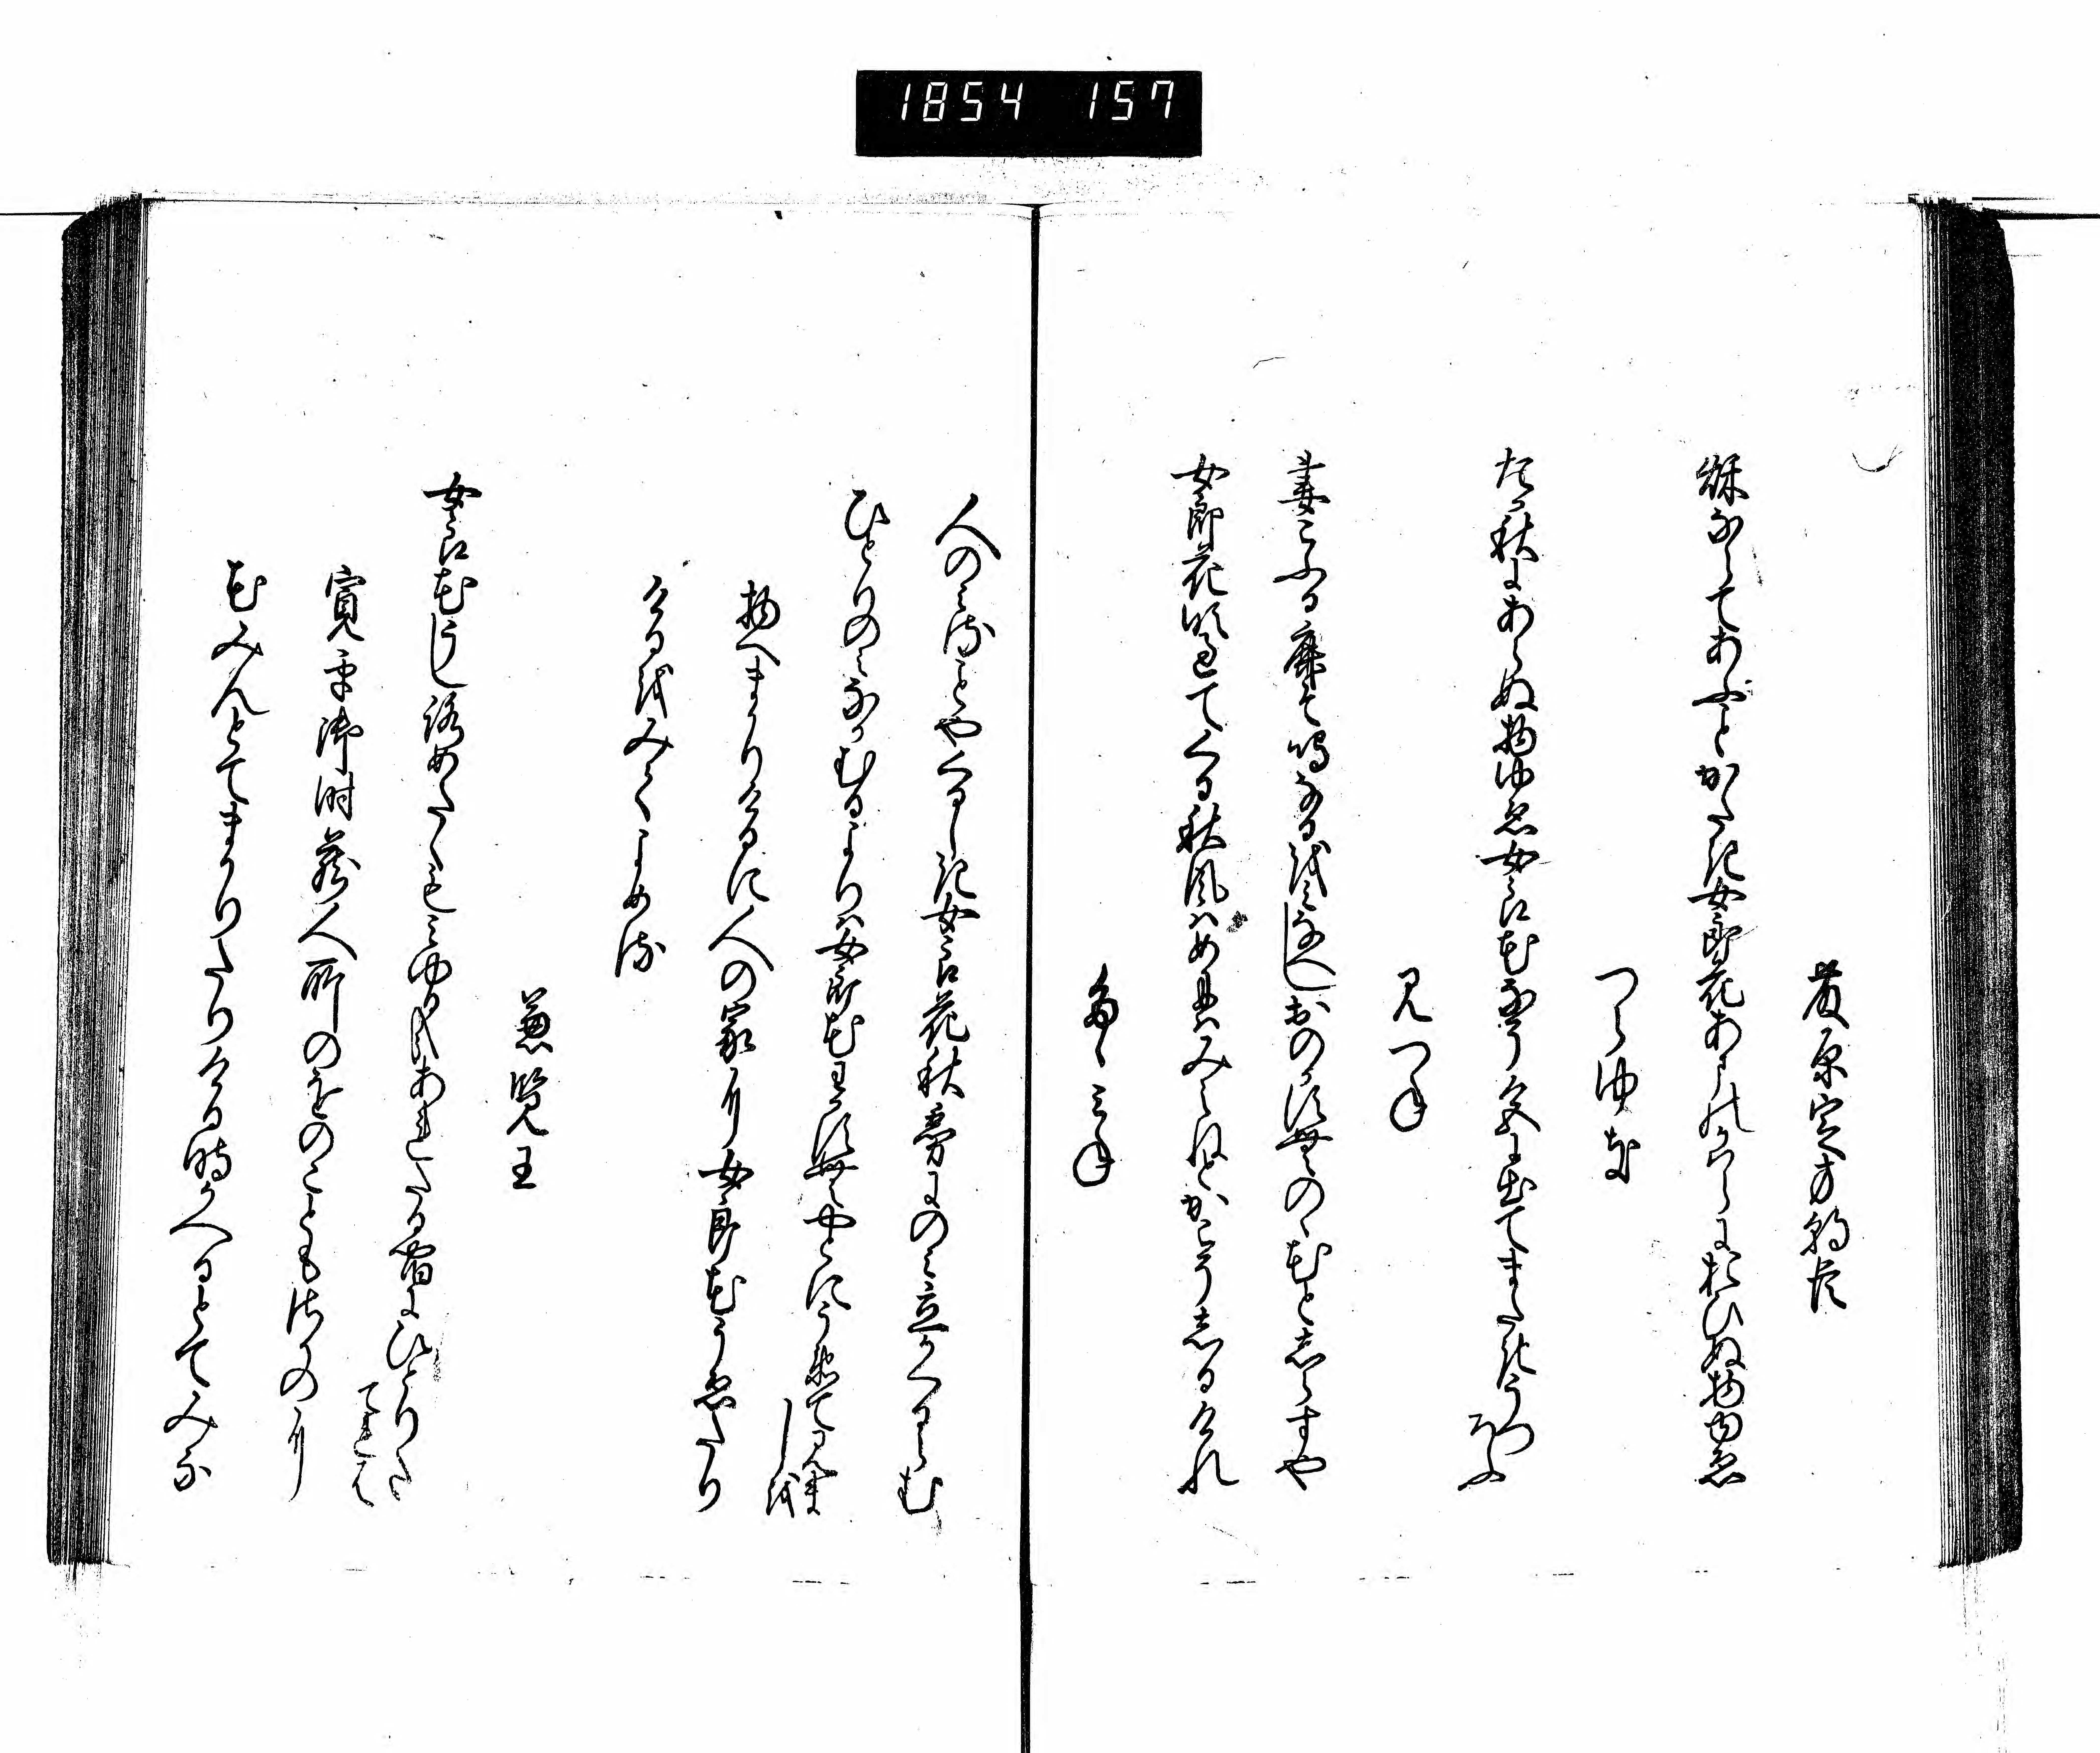 1854 157
藤原定方朝臣
秋ならてあふことかたき女郎花あまのかはらにおひぬ物ゆゑ
つらゆき
たか秋にあらぬ物ゆゑ女郎花なそ色に出てまたきうつ
ろふ
みつね
妻こふる鹿そ鳴なる女郎花おのかすむ野の花としらすや
女郎花吹過てくる秋風はめには見えねとかこそしるけれ
たゝみね
人のみることやくるしき女郎花秋霧にのみ立かくるらむ
ひとりのみなかむるよりは女郎花わかすむやとにうゑて見まし
を
物へまかりけるに人の家に女郎花うゑたり
けるをみてよめる
兼覧王
女郎花うしろめたくもみゆるかなあれたる宿にひとりた
てれは
寛平御時蔵人所のをのこともさか野に
花みんとてまかりたりける時かへるとてみな